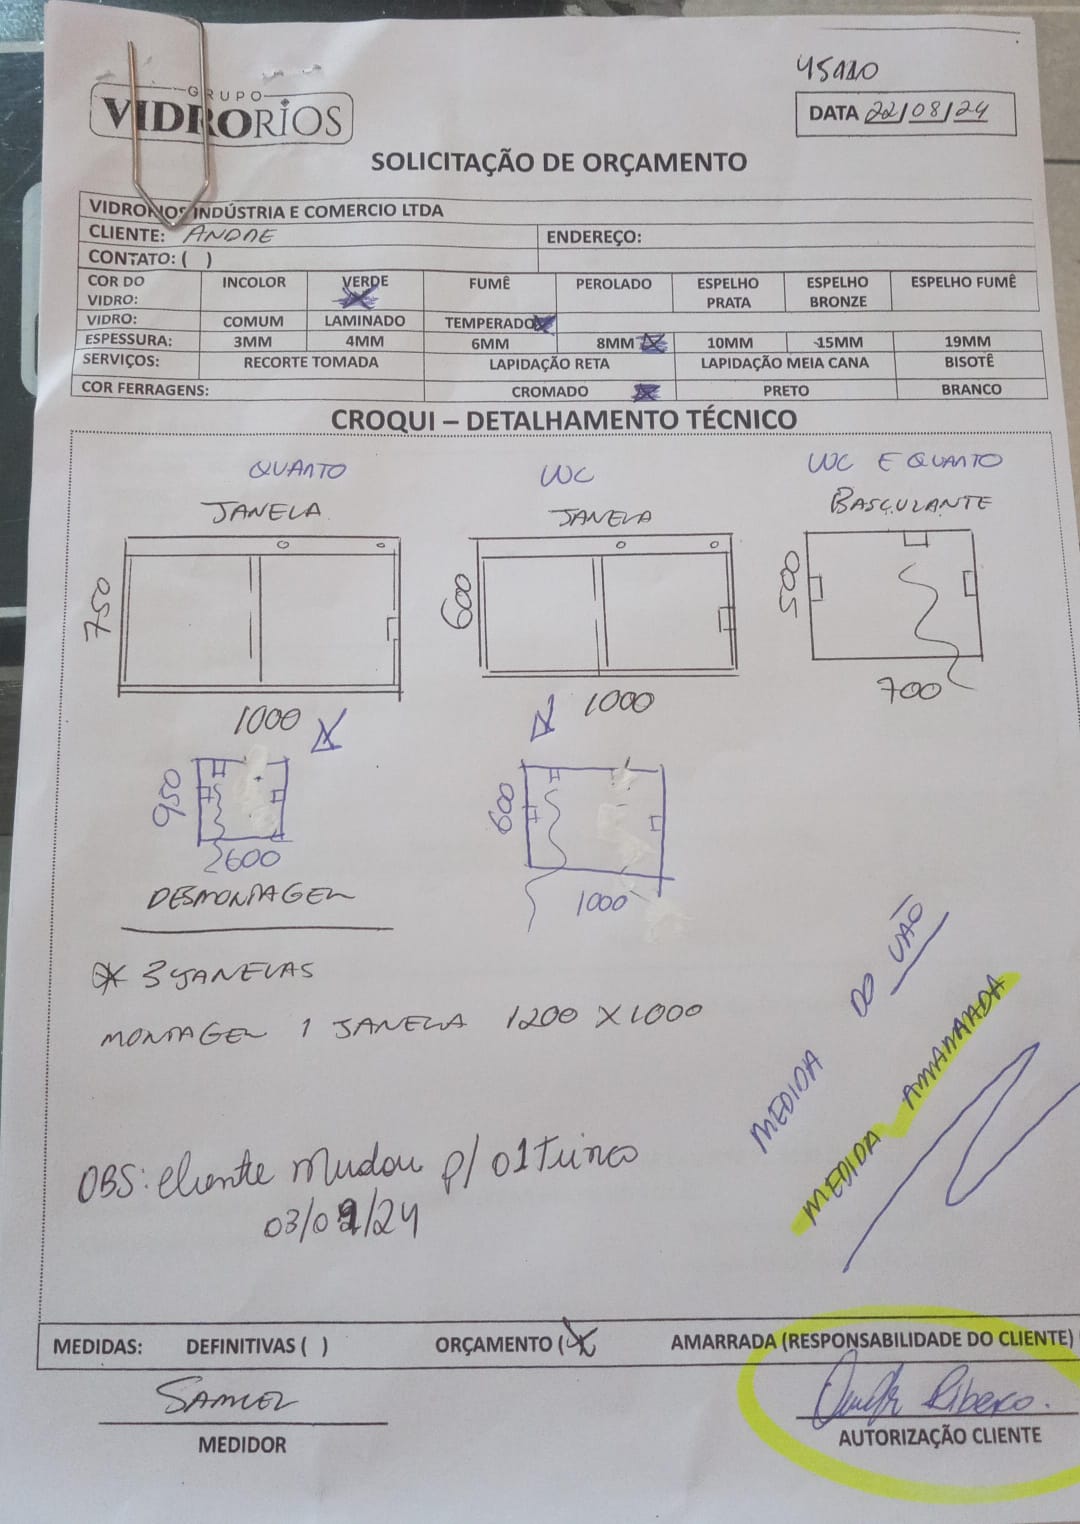 45110
GRUPO
VIDRORIOS
DATA 22/08/24
SOLICITAÇÃO DE ORÇAMENTO
VIDRORIOS INDÚSTRIA E COMERCIO LTDA
CLIENTE: ANDRE ENDEREÇO:
CONTATO: ( )
COR DO VIDRO: INCOLOR VERDE FUMÊ PEROLADO ESPELHO PRATA ESPELHO BRONZE ESPELHO FUMÊ
VIDRO: COMUM LAMINADO TEMPERADO
ESPESSURA: 3MM 4MM 6MM 8MM 10MM 15MM 19MM
SERVIÇOS: RECORTE TOMADA LAPIDAÇÃO RETA LAPIDAÇÃO MEIA CANA BISOTÊ
COR FERRAGENS: CROMADO PRETO BRANCO
CROQUI – DETALHAMENTO TÉCNICO
QUARTO WC WC E QUARTO
JANELA JANELA BASCULANTE
750 600 500
1000 1000 700
950 600
2600 1000
DESMONTAGEM
3 JANELAS
MONTAGEM 1 JANELA 1200 X 1000
MEDIDA DO VÃO
MEDIDA AMARRADA
OBS: cliente mudou p/ 01 Trinco
03/09/24
MEDIDAS: DEFINITIVAS ( ) ORÇAMENTO (X AMARRADA (RESPONSABILIDADE DO CLIENTE)
SAMUEL Ribeiro.
MEDIDOR AUTORIZAÇÃO CLIENTE